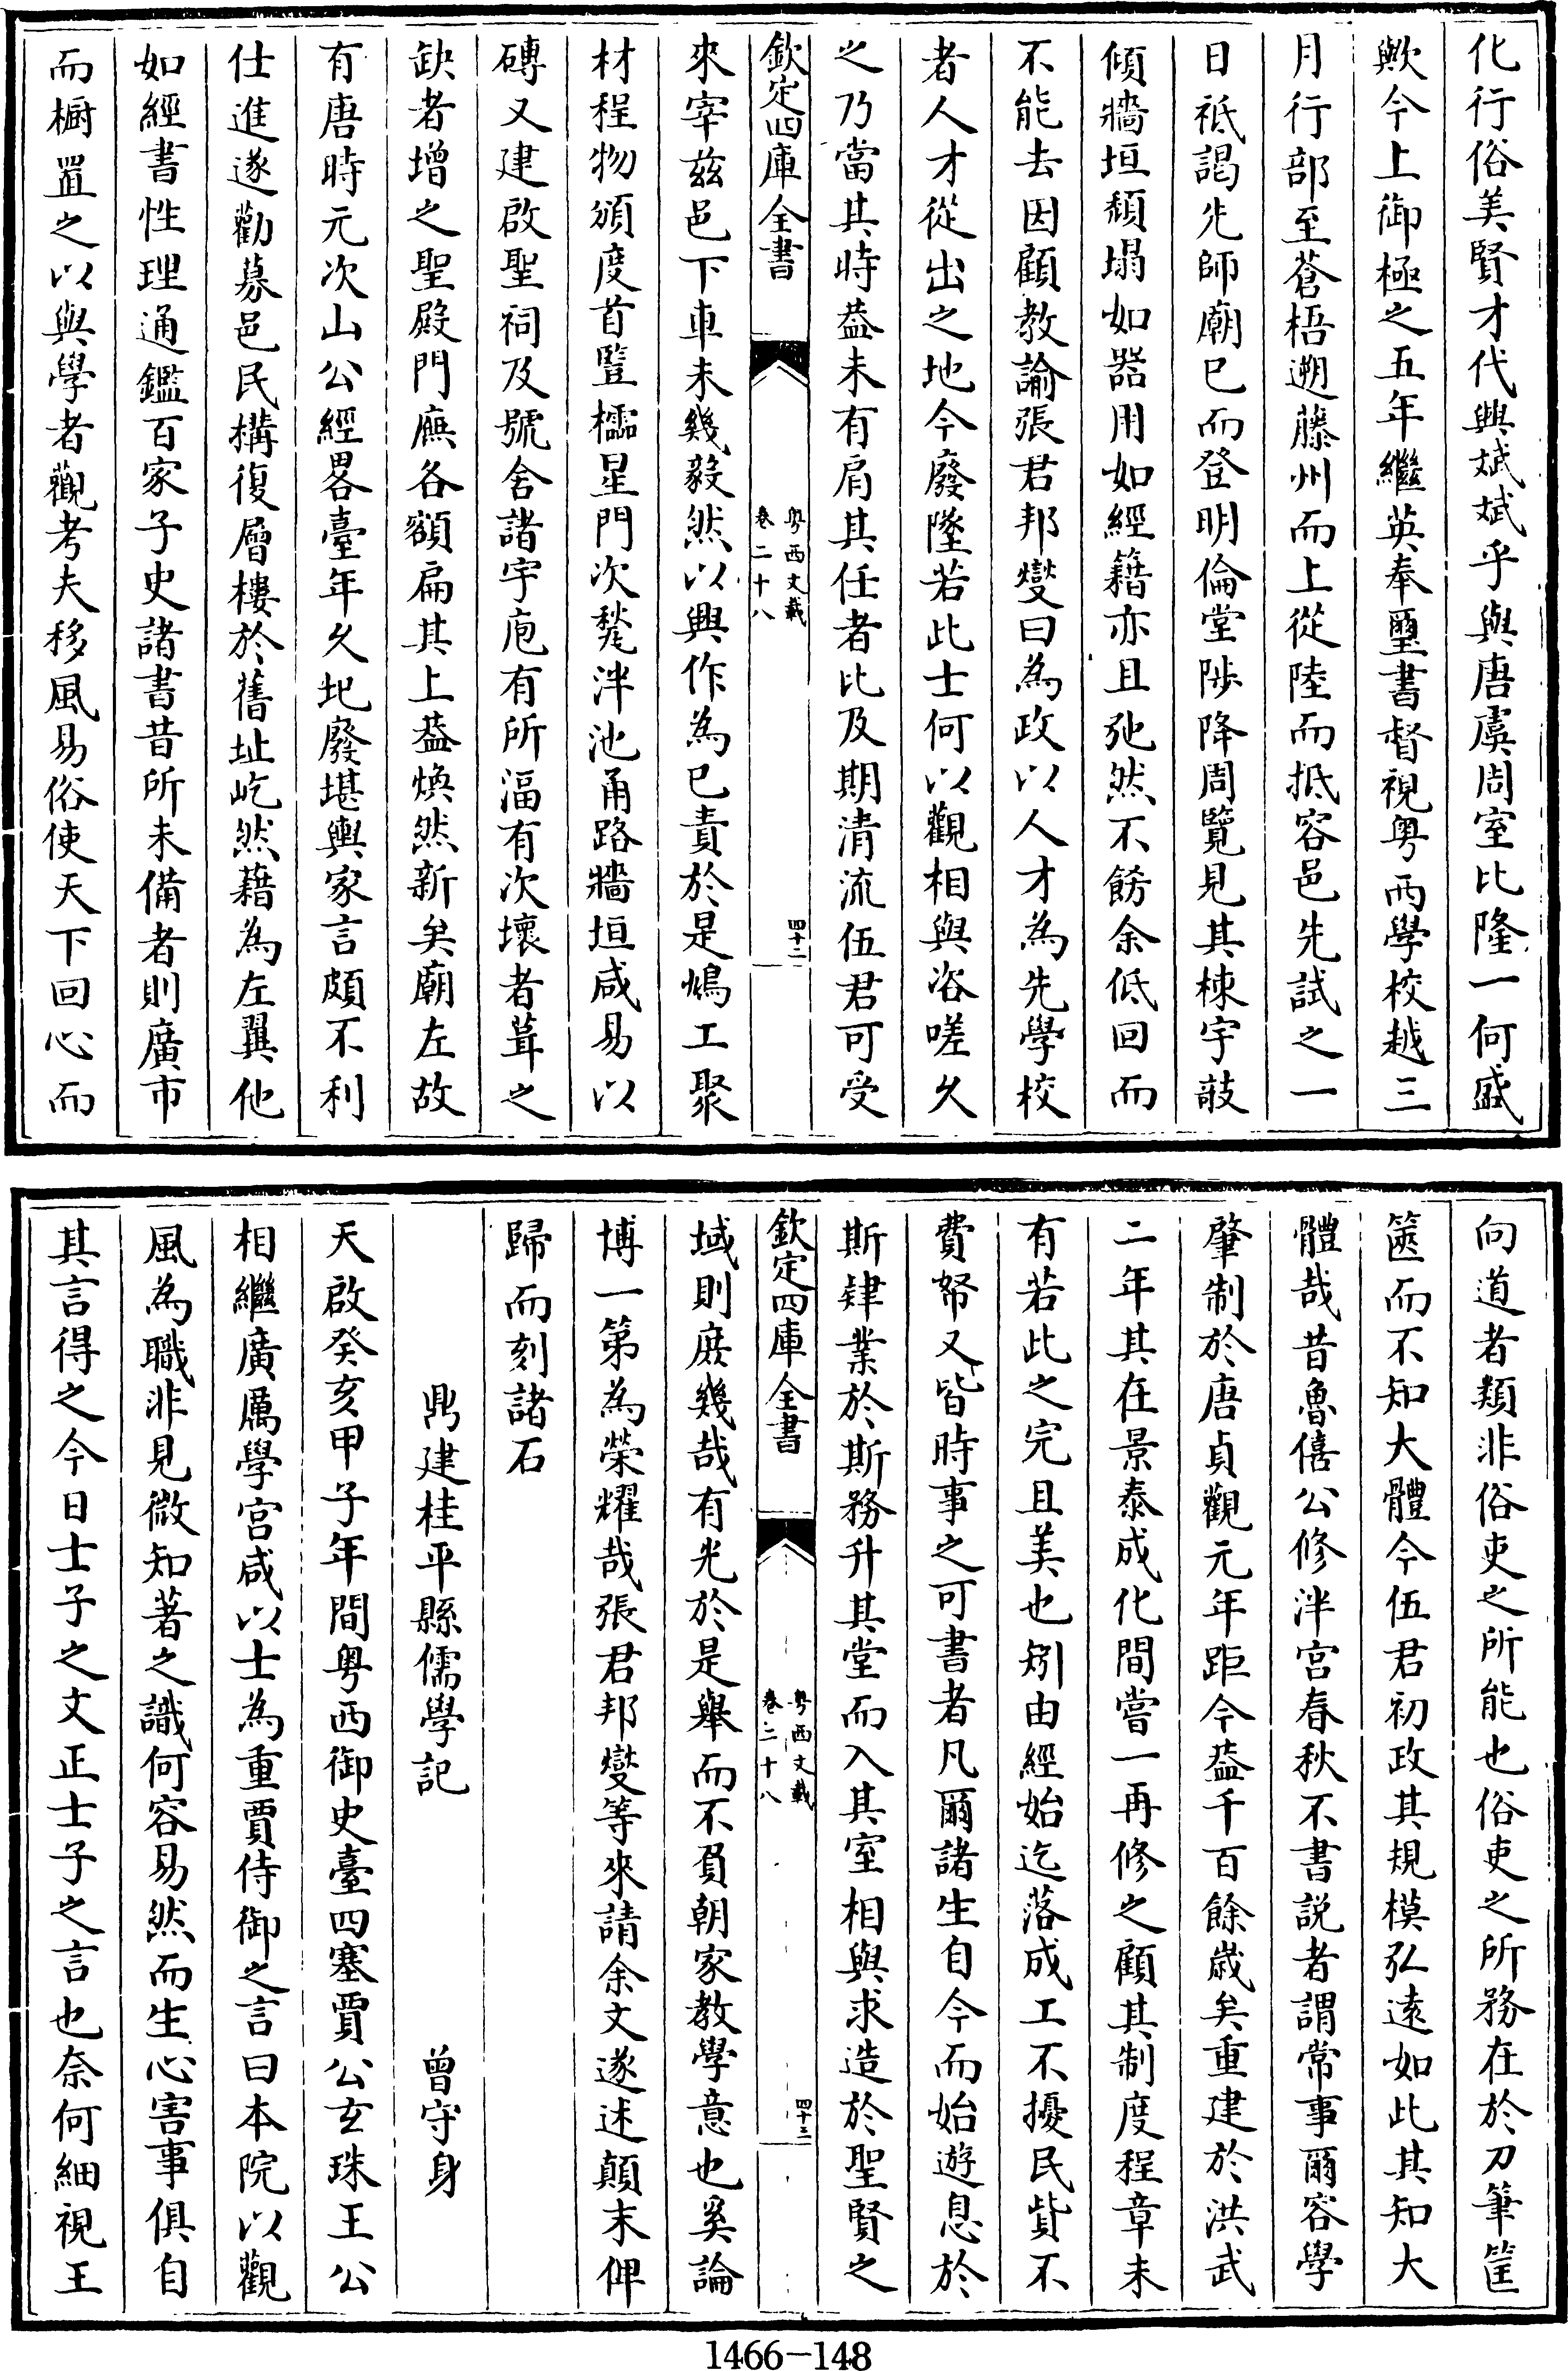 化行俗美賢才代興斌斌乎與唐虞周室比隆一何盛
歟今上御極之五年繼英奉璽書督視粤西學校越三
月行部至蒼梧遡藤州而上從陸而抵容邑先試之一
日祗謁先師廟已而登明倫堂陟降周覽見其棟宇敧
傾牆垣頽塌如器用如經籍亦且弛然不飭余低回而
不能去因顧教諭張君邦燮曰為政以人才為先學校
者人才從出之地今廢墜若此士何以觀相與咨嗟久
之乃當其時葢未有肩其任者比及期清流伍君可受
欽定四庫全書
粤西文載
卷二十八
四十二
來宰兹邑下車未幾毅然以興作為已責於是鳩工聚
材程物頒度首豎櫺星門次甃泮池甬路牆垣咸易以
磚又建啟聖祠及號舍諸宇庖有所湢有次壞者葺之
缺者增之聖殿門廡各額扁其上葢煥然新矣廟左故
有唐時元次山公經畧臺年久圮廢堪輿家言頗不利
仕進遂勸募邑民構復層樓於舊址屹然藉為左翼他
如經書性理通鑑百家子史諸書昔所未備者則廣市
而櫥置之以與學者觀考夫移風易俗使天下回心而
向道者類非俗吏之所能也俗吏之所務在於刀筆筐
篋而不知大體今伍君初政其規模弘遠如此其知大
體哉昔魯僖公修泮宫春秋不書説者謂常事爾容學
肇制於唐貞觀元年距今葢千百餘歲矣重建於洪武
二年其在景泰成化間嘗一再修之顧其制度程章未
有若此之完且美也矧由經始迄落成工不擾民貲不
費帑又皆時事之可書者凡爾諸生自今而始遊息於
斯肄業於斯務升其堂而入其室相與求造於聖賢之
欽定四庫全書
粤西文載
卷二十八
四十三
域則庶幾哉有光於是舉而不負朝家教學意也奚論
博一第為榮耀哉張君邦燮等來請余文遂述顛末俾
歸而刻諸石
鼎建桂平縣儒學記 曾守身
天啟癸亥甲子年間粤西御史臺四塞賈公玄珠王公
相繼廣厲學宫咸以士為重賈侍御之言曰本院以觀
風為職非見微知著之識何容易然而生心害事俱自
其言得之今日士子之文正士子之言也奈何細視王
1466-148